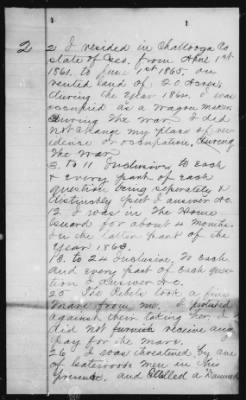 2
2 I resided in Chattooga Co
State of Geo. from April 1st
1861. to June 1st 1865. on
rented land of 20 Acres
during the year 1864. I was
occupied as a Wagon maker
during the War I did
not change my place of res
idence or occupation, during
the War
3. To 11 Inclusive to each
& every part of each
question being seperately &
distinctly put I answer No.
12 I was in the Home
Guard for about 4 months.
in the latter part of the
Year 1863.
13. to 24 Inclusive, To each
and every part of each ques
tion I answer No.
25 The Rebels took a fine
mare from me I protested
against their taking her, I
did not furnish receive any
pay for the mare.
26 I was threatened by one
of men in his
presence. and called a Damned